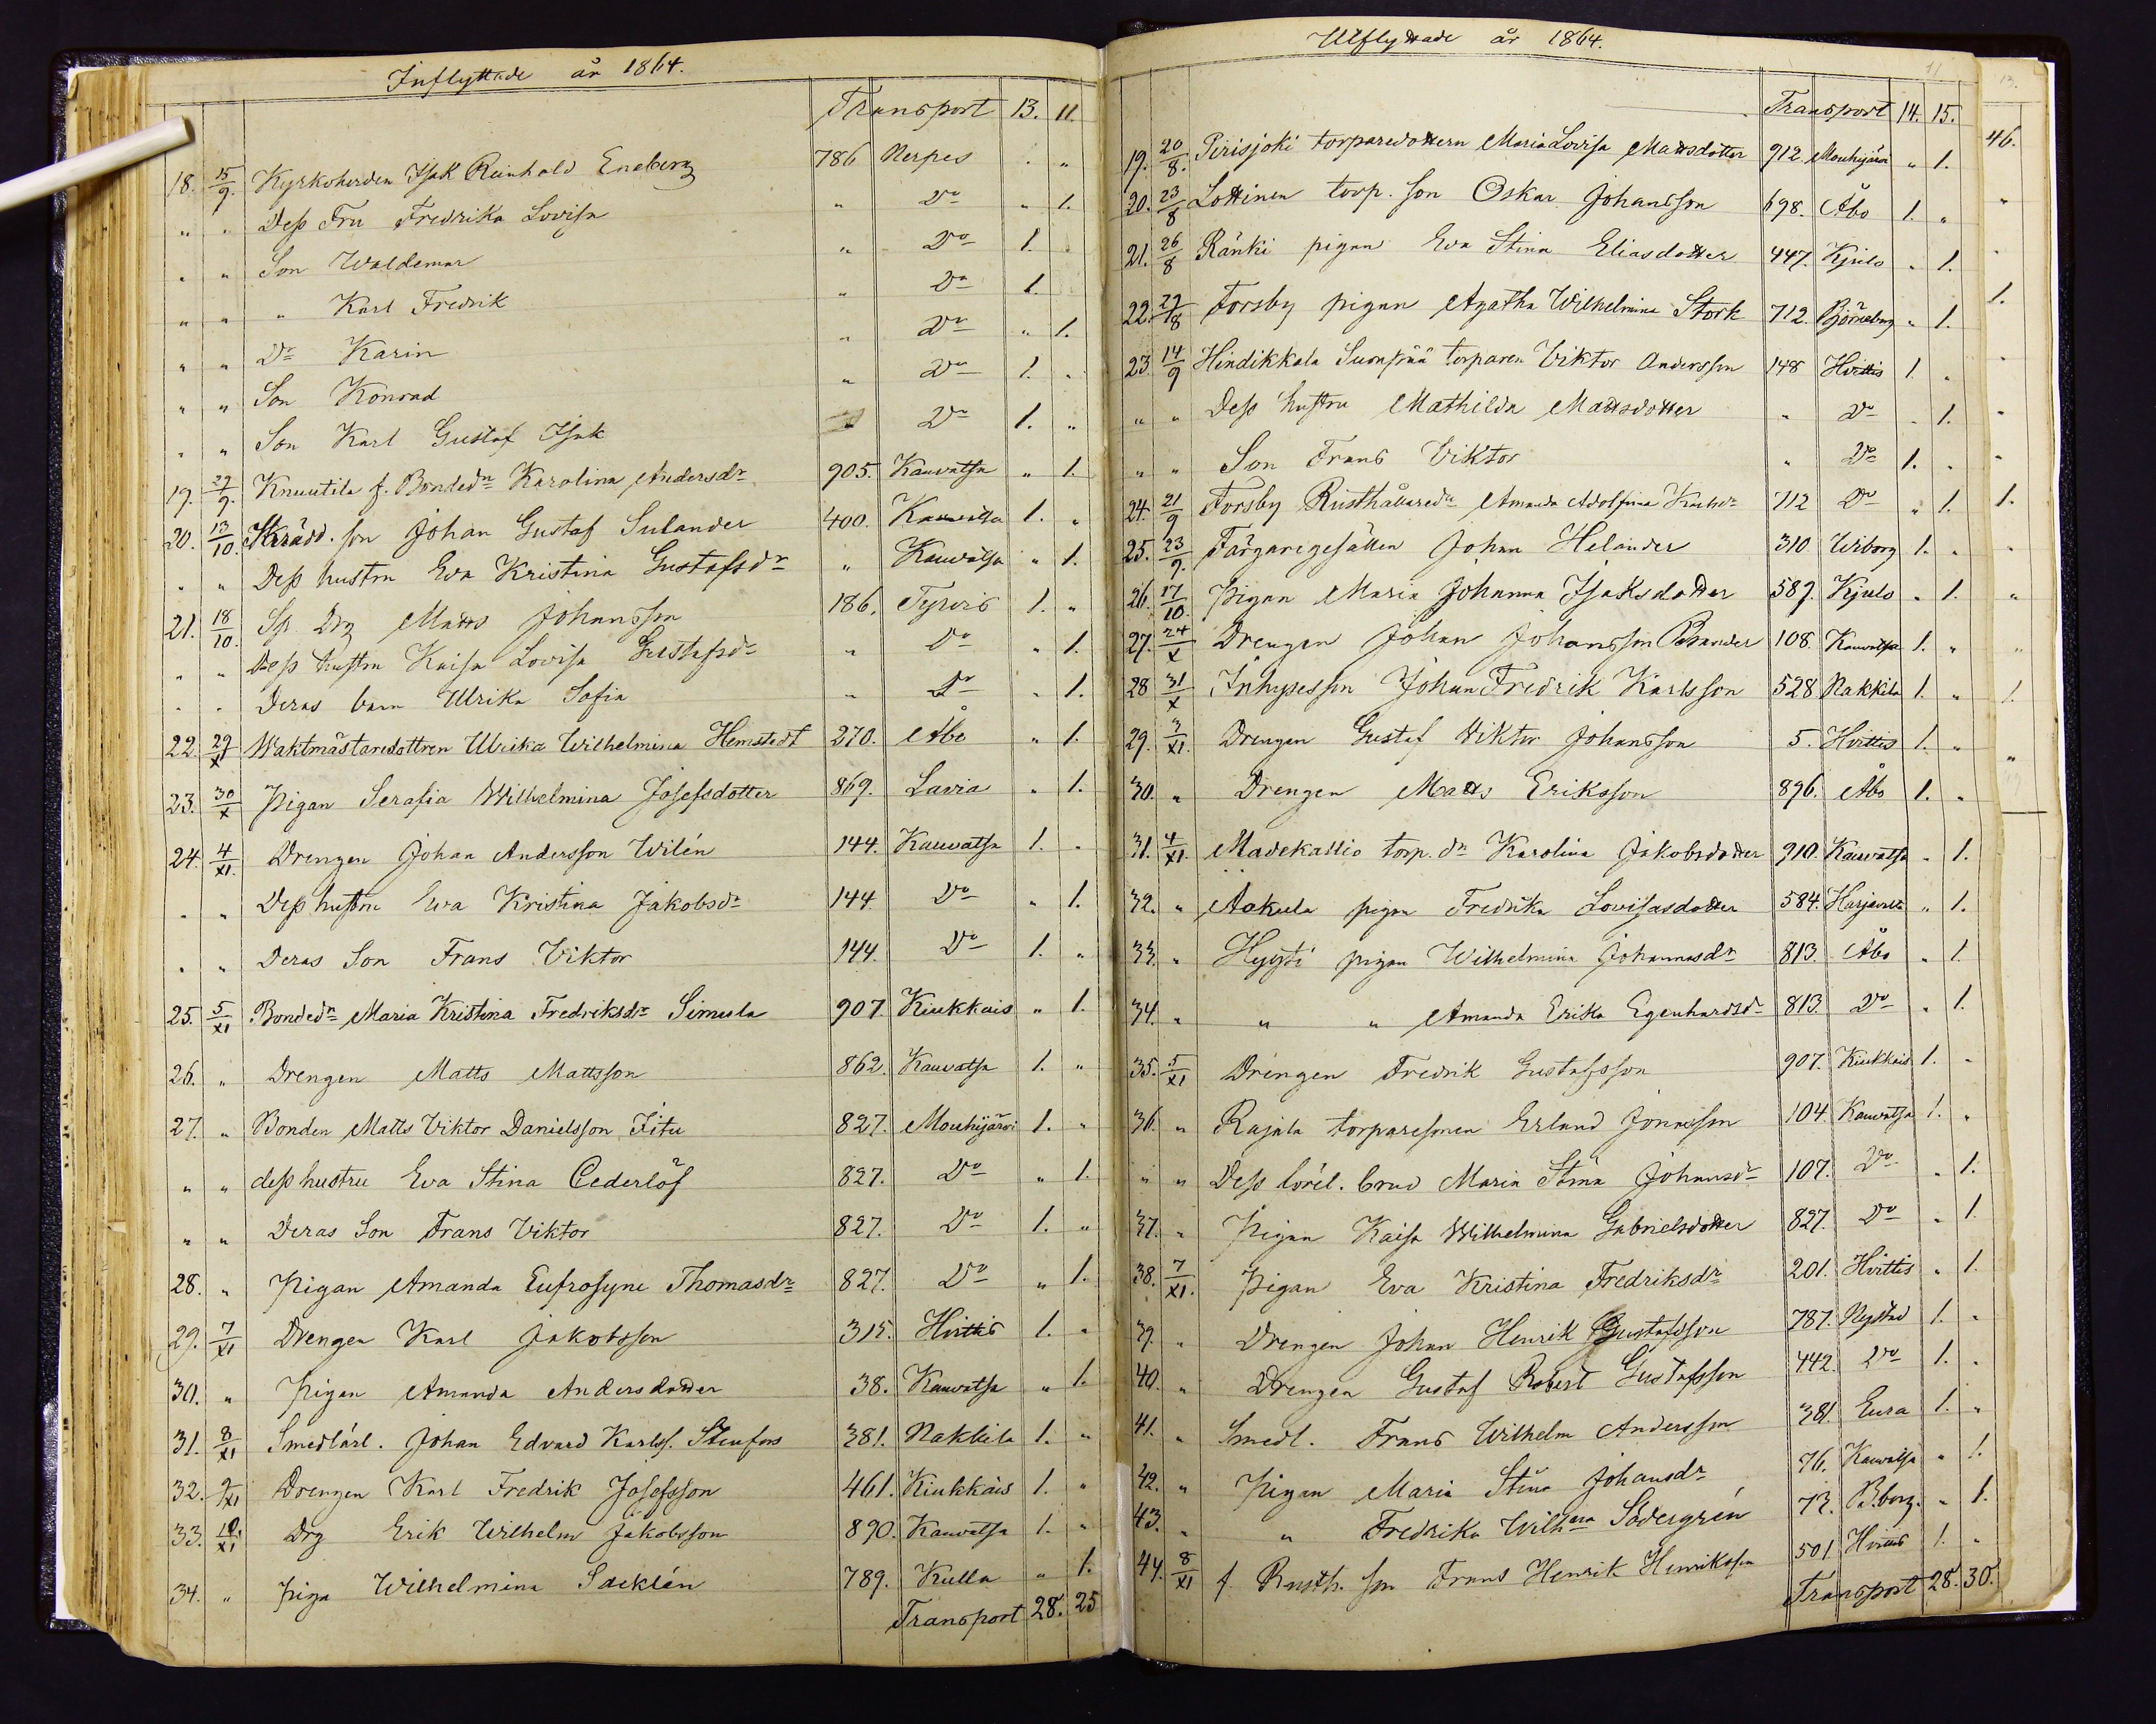 Inflyttade år 1864.
Transport 13. 11.
18. 15/9. Kyrkoherden Isak Reinhold Eneberg 786 Nerpes . „
„ „ Dess Fru Fredrika Lovisa „ Do „ 1.
„ „ Son Waldemar „ Do 1.
„ „ „ Karl Fredrik „ Do 1.
„ „ Dr Karin „ Do „ 1.
„ „ Son Konrad „ Do 1. „
„ „ Son Karl Gustaf Isak Do 1. „
19. 27/9. Knuutila f. Bondedr Karolina Andersdr 905. Kauvatsa „ 1.
20. 13/10. Skrädd. son Johan Gustaf Sulander 400. Kauvatsa 1. „
„ „ Dess hustru Eva Kristina Gustafsdr „ Kauvatsa „ 1.
21. 18/10. Sp. Drg Matts Johansson 186. Tyrvis 1. „
„ „ Dess hustru Kaisa Lovisa Gustafsdr „ Do „ 1.
„ „ Deras barn Ulrika Sofia „ Do „ 1.
22. 29/X Waktmästaredottren Ulrika Wilhelmina Hemstedt 270. Åbo „ 1.
23. 30/X Pigan Serafia Wilhelmina Josefsdotter 869. Lavia „ 1.
24. 4/XI. Drengen Johan Andersson Wilén 144. Kauvatsa 1. „
„ „ Dess hustru Eva Kristina Jakobsdr 144 Do „ 1.
„ „ Deras Son Frans Viktor 144. Do 1. „
25. 5/XI Bondedr Maria Kristina Fredriksdr Simula 907. Kiukkais „ 1.
26. „ Drengen Matts Mattsson 862. Kauvatsa 1. „
27. „ Bonden Matts Viktor Danielsson Iitu 827. Mouhijärvi 1. „
„ „ dess hustru Eva Stina Cederlöf 827. Do „ 1.
„ „ Deras Son Frans Viktor 827. Do 1. „
28. „ Pigan Amanda Eufrosyne Thomasdr 827. Do „ 1.
29. 7/XI Drengen Karl Jakobsson 315. Hvittis 1. „
30. „ Pigan Amanda Andersdotter 38. Kauvatsa „ 1.
31. 8/XI Smedlärl. Johan Edvard Karlss. Stenfors 381. Nakkila 1. „
32. 9/XI Drengen Karl Fredrik Josefsson 461. Kiukkais 1. „
33. 10/XI Drg Erik Wilhelm Jakobsson 890. Kauvatsa 1. „
34. „ Piga Wilhelmina Sacklén 789. Kulla „ 1.
Transport 28. 25
Utflyttade år 1864.
11
Transport 14. 15.
19. 20/8. Pirisjoki torparedottern Maria Lovisa Mattsdotter 912. Mouhijärvi „ 1.
20. 23/8 Lottinen torp. son Oskar Johansson 698. Åbo 1. „
21. 26/8 Ränki pigan Eva Stina Eliasdotter 447. Kjulo „ 1.
22. 29/8 Forsby pigan Agatha Wilhelmina Stork 712. Björneborg „ 1.
23 14/9 Hindikkala Suonpää torparen Viktor Andersson 148 Hvittis 1. „
„ „ Dess hustru Mathilda Mattsdotter „ Do „ 1.
„ „ Son Frans Viktor „ Do 1. „
24. 21/9 Forsby Rusthållaredr Amanda Adolfina Karlsdr 712 Do „ 1.
25. 23/9. Färgaregesällen Johan Helander 310 Wiborg 1. „
26. 17/10. Pigan Maria Johanna Isaksdotter 589. Kjulo „ 1.
27. 24/X Drengen Johan Johansson Brander 108. Kauvatsa 1. „
28 31/X Inhysesson Johan Fredrik Karlsson 528 Nakkila 1. „
29. 3/XI. Drengen Gustaf Viktor Johansson 5. Hvittis 1. „
30. „ Drengen Matts Eriksson 896. Åbo 1. „
31. 4/XI. Madekallio torp. dr Karolina Jakobsdotter 910. Kauvatsa „ 1.
32. „ Aakula pigan Fredrika Lovisasdotter 584. Harjavalta „ 1.
33. „ Hyyti pigan Wilhelmina Johannasdr 813. Åbo „ 1
34. „ „ „ Amanda Erika Egenhardsdr 813. Do „ 1.
35. 5/XI Drengen Fredrik Gustafsson 907. Kiukkais 1. „
36. „ Rajala torparesonen Erland Jonasson 104. Kauvatsa 1. „
„ „ Dess lörel. brud Maria Stina Johansdr 107. Do „ 1.
37. „ Pigan Kaisa Wilhelmina Gabrielsdotter 827. Do „ 1.
38. 7/XI. Pigan Eva Kristina Fredriksdr 201. Hvittis „ 1.
39. „ Drengen Johan Henrik Gustafsson 787. Nystad 1. „
40. „ Drengen Gustaf Robert Gustafsson 442. Do 1. „
41. „ Smedl. Frans Wilhelm Andersson 381. Eura 1. „
42. „ Pigan Maria Stina Johansdr 76. Kauvatsa „ 1.
43. „ „ Fredrika Wilhna Södergrén 73. B.borg. „ 1.
44. 8/XI f. Rusth. son Frans Henrik Henriksson 501. Hvittis 1. „
Transport 28. 30.
13.
46.
„
„
1.
„
„
„
1.
„
„
„
1.
„